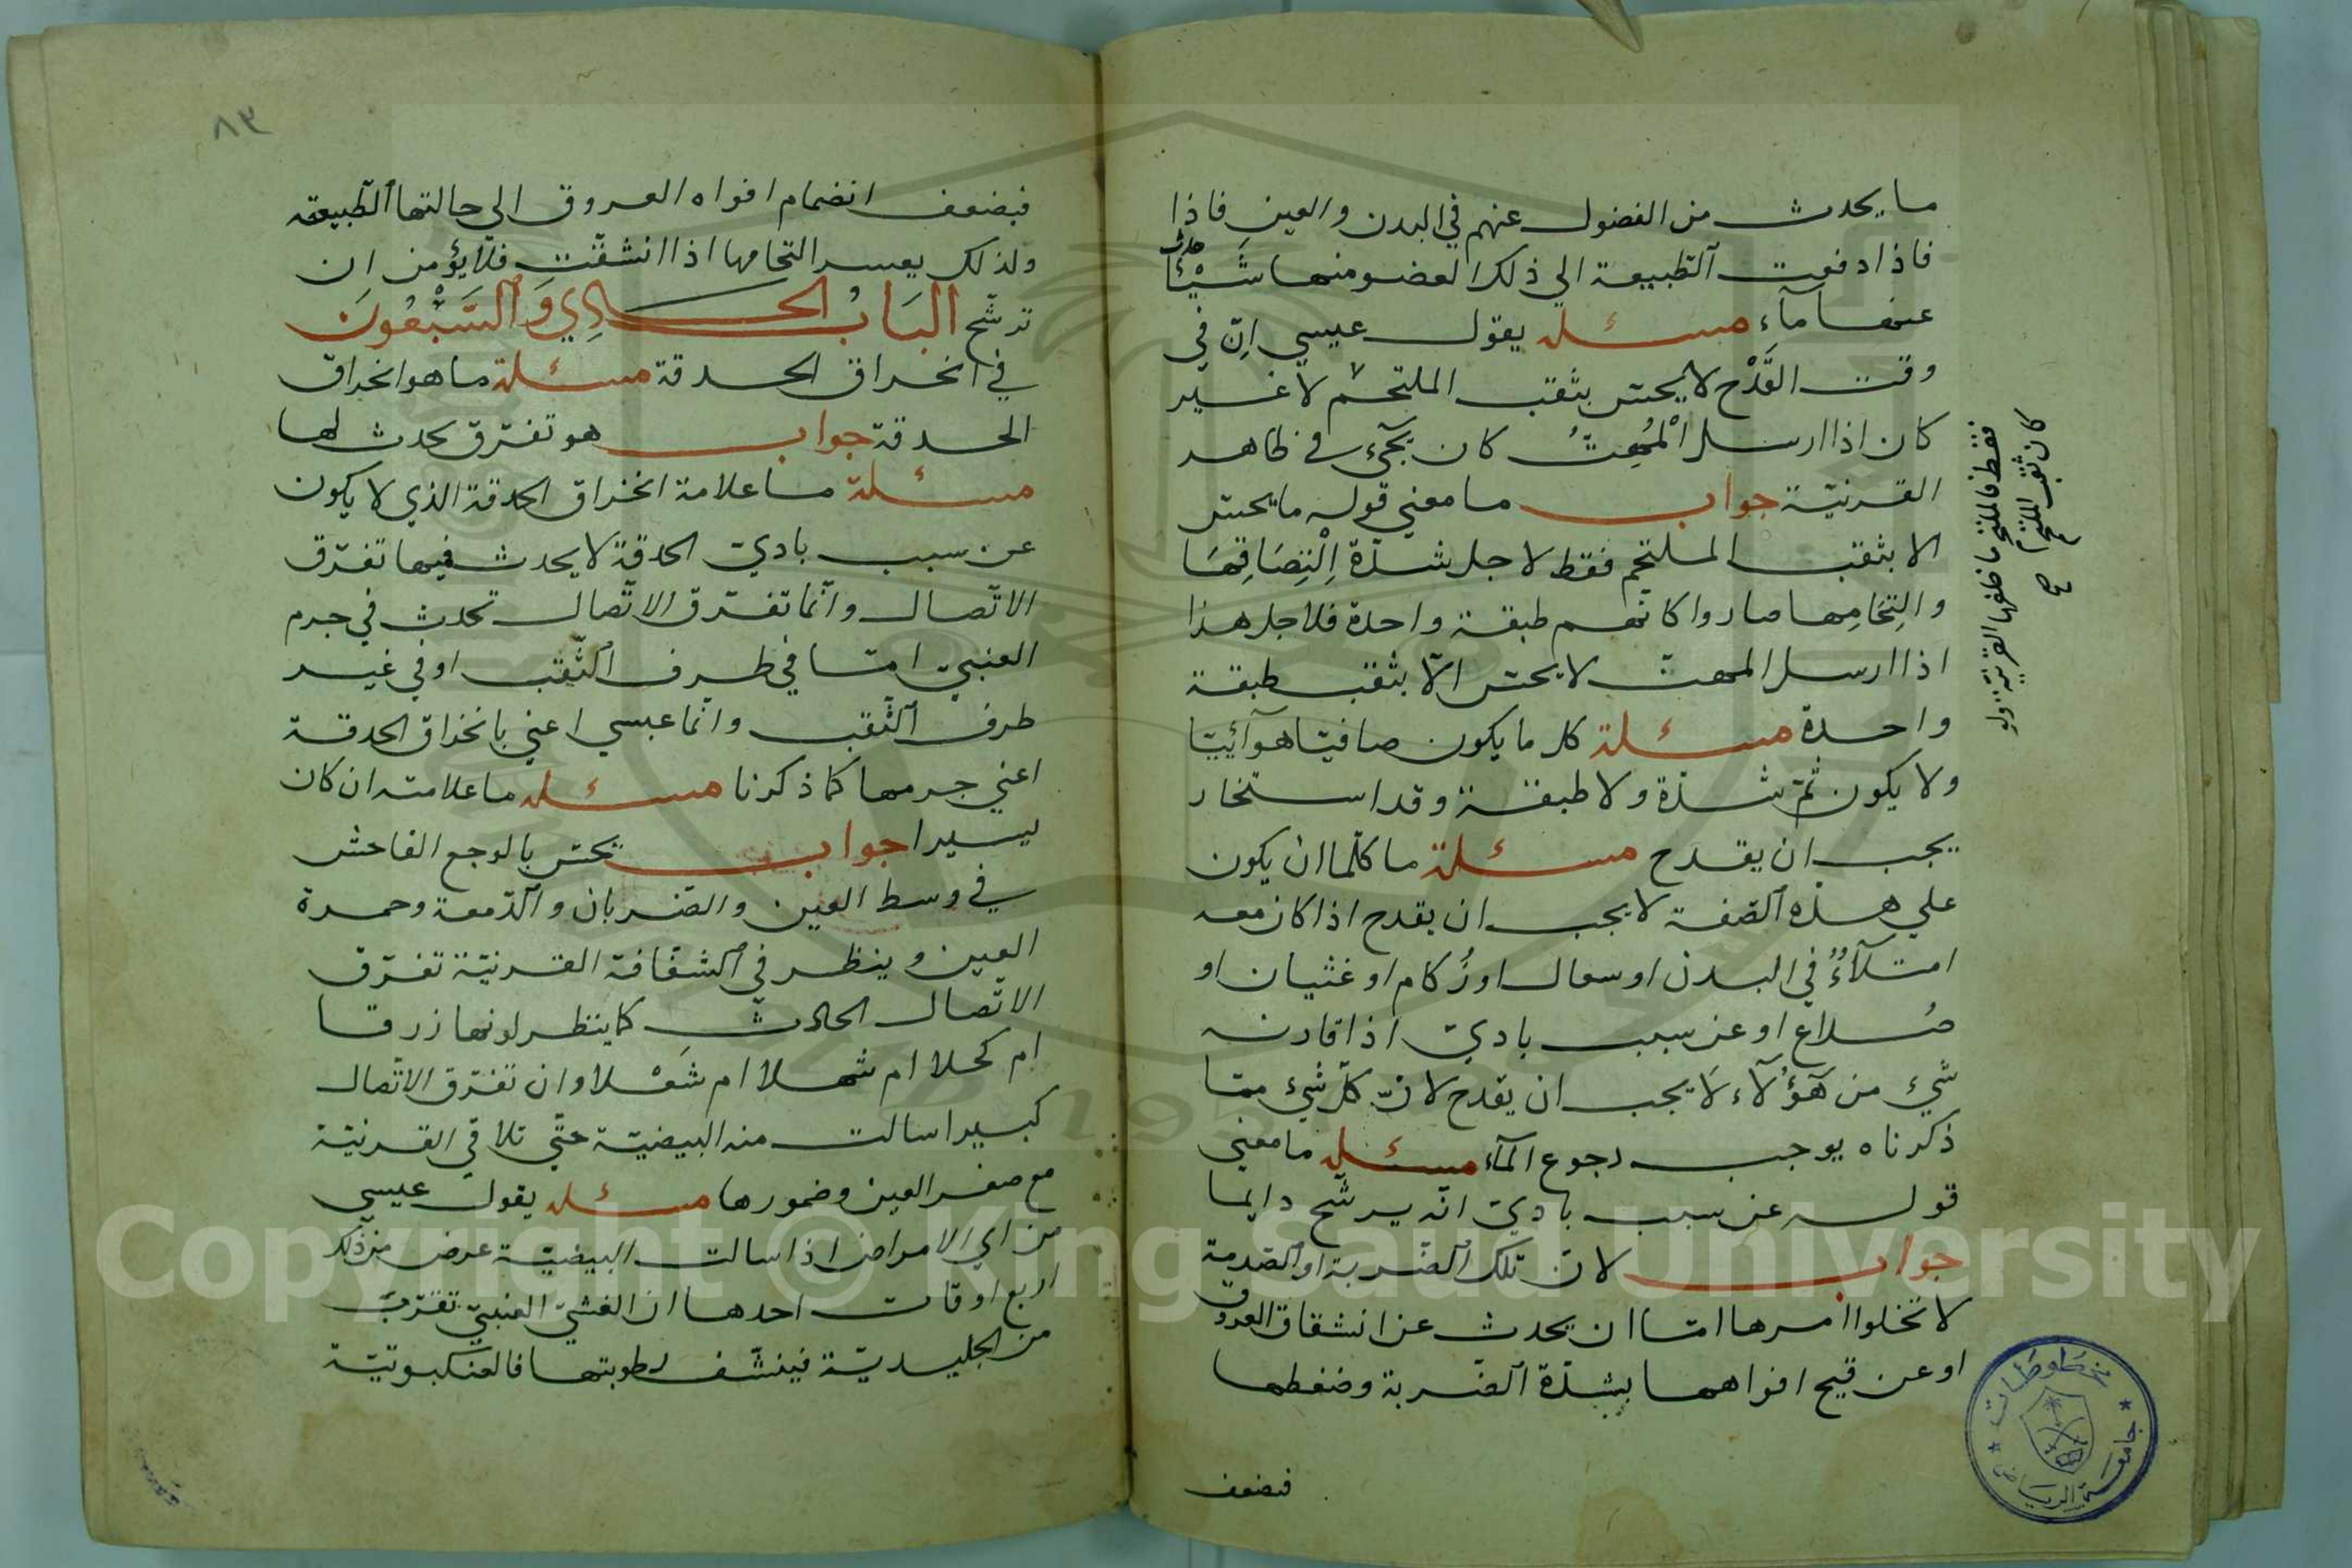 ما يحدث من الفضول عنهم في البدن والعين فاذا
فاذا دفعت الطبيعة الي ذلك العضو منها شَيْئًا
حدث
عنها مآء مسئله يقول عيسي اِنّ في
وقت القَدْح لا يحسّ بثقب الملتحم لا غير
كان اذا ارسل الْمُهِتُّ كان يجيء في ظاهر
القرنيّة جواب ما معني قوله ما يحسّ
الا بثقب الملتحم فقط لاجل شدّة اِلْتِصَاقِهَا
والتِحَامِها صاروا كانهم طبقة واحدة فلاجل هذا
اذا ارسل المهتّ لا يحسّ الّا بثقب طبقة
واحدة مسئلة كل ما يكون صافيًا هوآئيًا
ولا يكون ثمّ شدّة ولا طبقة وقد استخار
يجب ان يقدح مسئلة ما كلّما ان يكون
علي هذه الصّفة لا يجب ان يقدح اذا كان معه
امتلآءٌ في البدن او سعال او زُكام او غثيان او
صُداع او عن سبب باديّ اذا قارنه
شيء من هَؤُلآء لَا يجب ان يقدح لانّ كلّ شيء ممّا
ذكرناه يوجب رجوع المآء مسئله ما معني
قوله عن سبب باديّ انّه يرشّح دايما
جواب لانّ تلك الضّربة او الصّدمة
لا تخلوا امرها امّا ان يحدث عن انشقاق العروق
او عن قيح افواهها بشدّة الضّربة وضغطها
فيضعف
فقط فالملتحم ما خلفها القرنيّة ولو
كان ثقب الملتحم
صح
٨٣
فيضعف انضمام افواه العروق الي حالتها الطّبيعة
ولذلك يعسر التحامها اذا انشقّت فلا يؤمن ان
ترشّح البَابُ الحَادِي وَالسَّبْعُونَ
في انخراق الحدقة مسئلة ما هو انخراق
الحدقة جواب هو تفرّق يحدث لها
مسئلة ما علامة انخراق الحدقة الذي لا يكون
عن سبب باديّ الحدقة لا يحدث فيها تفرّق
الاتّصال وانّما تفرّق الاتّصال تحدث في جرم
العنبيّ امّا في طرف الثّقب او في غير
طرف الثّقب وانّما عيسي اعني بانخراق الحدقة
اعني جرمها كما ذكرنا مسئله ما علامته ان كان
يسيرا جواب يحسّ بالوجع الفاحش
في وسط العين والضّربان والدّمعة وحمرة
العين وينظر في الشفّافة القرنيّة تفرّق
الاتّصال الحادث كما ينظر لونها زرقا
ام كحلا ام شهلا ام شَعْلا وان تفرّق الاتّصال
كبيرا سالت منه البيضيّة حتّي تلاقي القرنيّة
مع صغر العين وضمورها مسئله يقول عيسي
من اي الامراض اذا سالت البيضيّة عرض من ذلك
اربع اوقات احدها ان الغشيّ العنبيّ تقرّب
من الجليديّة فينشّف رطوبتها فالعنكبوتيّة
مخطوطات
جامعة الرياض
Copyright © King Saud University